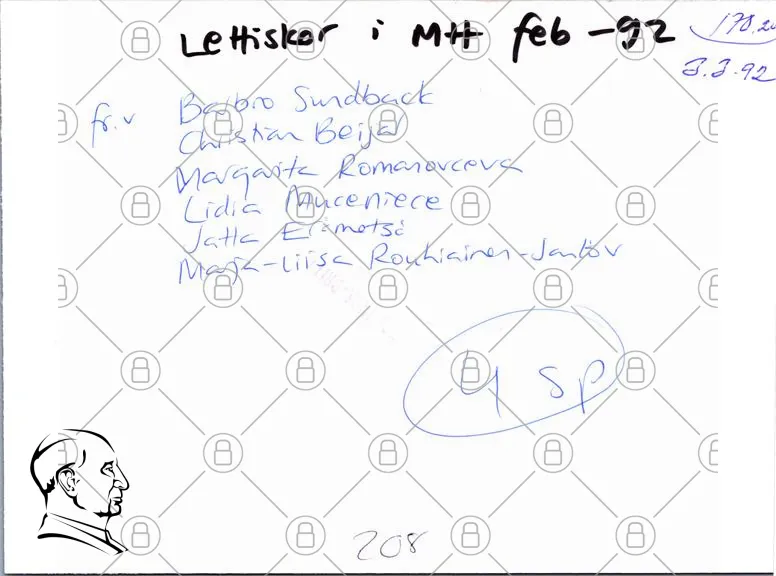 Lettiskor i MH feb -92
170,20
3.3.92
fr.v Barbro Sundback
Christian Beijar
Margarita Romanovceva
Lidia Muceniece
Jatta Erämetsä
Marja-Liisa Rouhiainen-Jantov
4 sp
208